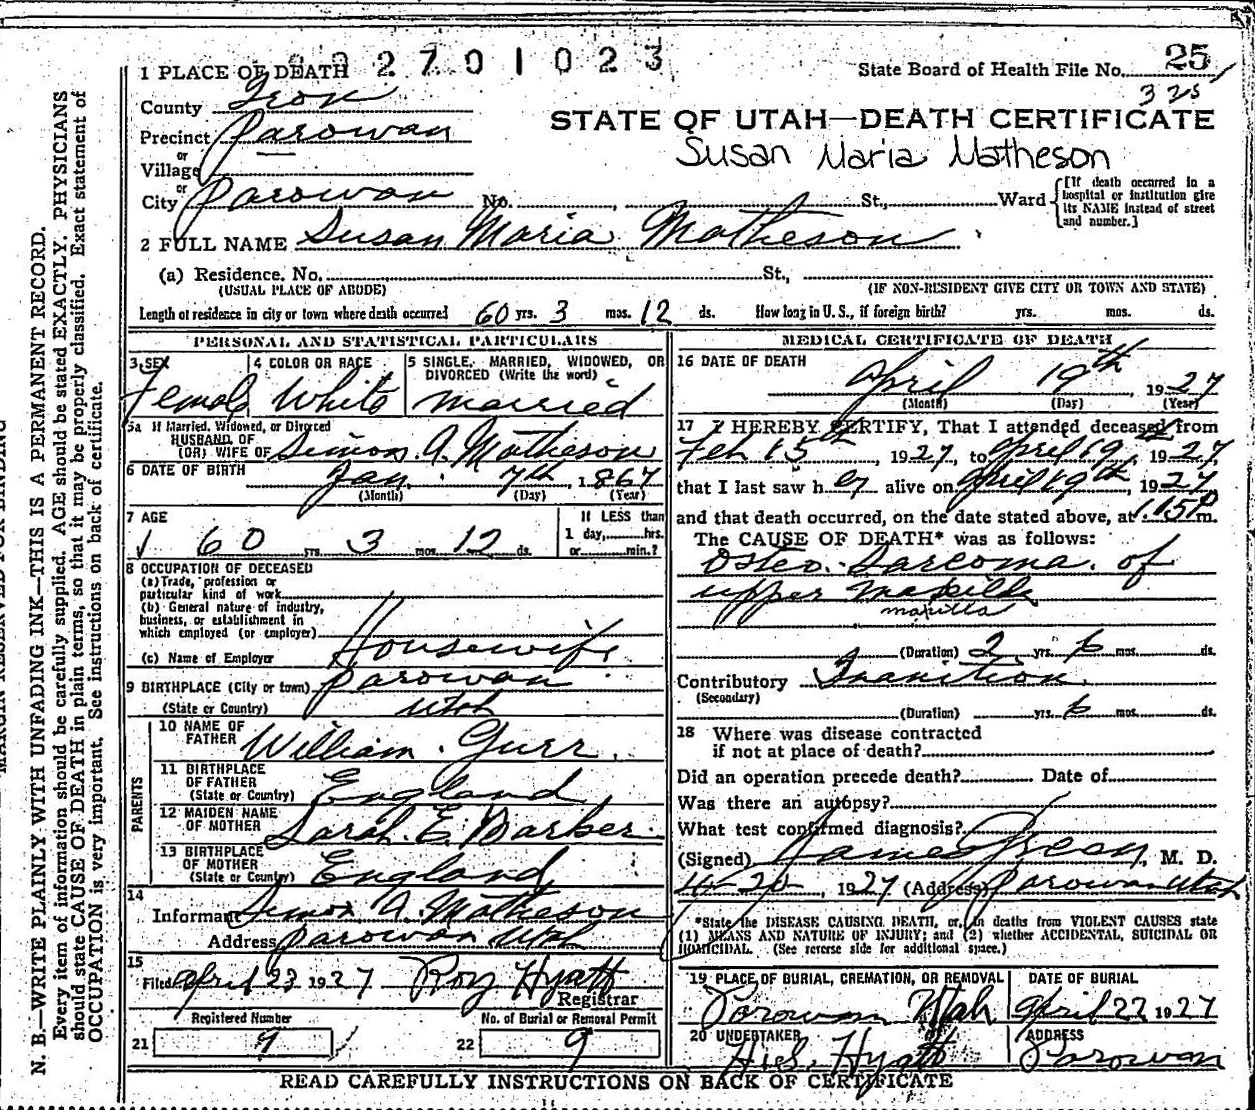 2 7 0 1 0 2 3
1 PLACE OF DEATH
State Board of Health File No. 25
325
County Iron
STATE OF UTAH—DEATH CERTIFICATE
Precinct Parowan
Susan Maria Matheson
or
Village
or
City Parowan No. St., Ward [If death occurred in a hospital or institution give its NAME instead of street and number.]
2 FULL NAME Susan Maria Matheson
(a) Residence. No. St.,
(USUAL PLACE OF ABODE) (IF NON-RESIDENT GIVE CITY OR TOWN AND STATE)
Length of residence in city or town where death occurred 60 yrs. 3 mos. 12 ds. How long in U. S., if foreign birth? yrs. mos. ds.
PERSONAL AND STATISTICAL PARTICULARS
3 SEX 4 COLOR OR RACE 5 SINGLE, MARRIED, WIDOWED, OR DIVORCED (Write the word)
Female White Married
5a If Married, Widowed, or Divorced
HUSBAND OF
(OR) WIFE OF Simon A. Matheson
6 DATE OF BIRTH Jan. 7th, 1867
(Month) (Day) (Year)
7 AGE If LESS than
60 yrs. 3 mos. 12 ds. 1 day, hrs.
or min.?
8 OCCUPATION OF DECEASED
(a) Trade, profession or
particular kind of work
(b) General nature of industry,
business, or establishment in
which employed (or employer)
Housewife
(c) Name of Employer
9 BIRTHPLACE (City or town) Parowan
(State or Country) Utah
PARENTS
10 NAME OF
FATHER William Gurr
11 BIRTHPLACE
OF FATHER
(State or Country) England
12 MAIDEN NAME
OF MOTHER Sarah E. Barber
13 BIRTHPLACE
OF MOTHER
(State or Country) England
14
Informant Simon A. Matheson
Address Parowan Utah
15
Filed April 23 1927 Roy Hyatt
Registrar
Registered Number No. of Burial or Removal Permit
21 9 22 9
MEDICAL CERTIFICATE OF DEATH
16 DATE OF DEATH
April 19th 1927
(Month) (Day) (Year)
17 I HEREBY CERTIFY, That I attended deceased from
Feb 15th, 1927, to April 19th, 1927,
that I last saw her alive on April 19th, 1927
and that death occurred, on the date stated above, at 1.15P m.
The CAUSE OF DEATH* was as follows:
Osteo. Sarcoma. of
upper Maxilla
maxilla
(Duration) 2 yrs. 6 mos. ds.
Contributory Inanition
(Secondary)
(Duration) yrs. 6 mos. ds.
18 Where was disease contracted
if not at place of death?
Did an operation precede death? Date of
Was there an autopsy?
What test confirmed diagnosis?
(Signed) James Green, M. D.
4-20, 1927 (Address) Parowan Utah
*State the DISEASE CAUSING DEATH, or, in deaths from VIOLENT CAUSES state
(1) MEANS AND NATURE OF INJURY; and (2) whether ACCIDENTAL, SUICIDAL OR
HOMICIDAL. (See reverse side for additional space.)
19 PLACE OF BURIAL, CREMATION, OR REMOVAL DATE OF BURIAL
Parowan Utah April 22 1927
20 UNDERTAKER ADDRESS
Hyatt Parowan
READ CAREFULLY INSTRUCTIONS ON BACK OF CERTIFICATE
MARGIN RESERVED FOR BINDING
N. B.—WRITE PLAINLY WITH UNFADING INK—THIS IS A PERMANENT RECORD.
Every item of information should be carefully supplied. AGE should be stated EXACTLY. PHYSICIANS
should state CAUSE OF DEATH in plain terms, so that it may be properly classified. Exact statement of
OCCUPATION is very important. See instructions on back of certificate.